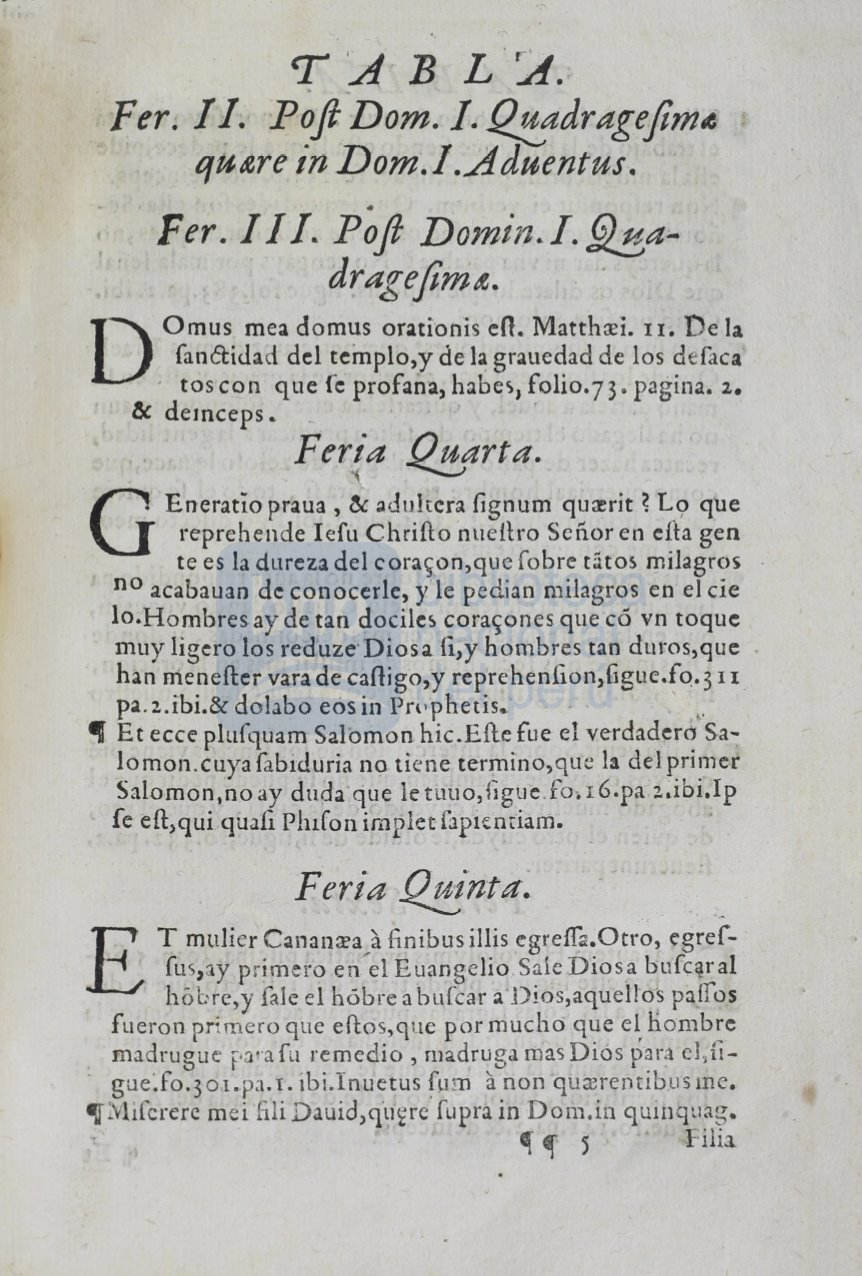 TABLA.
Fer. II. Poſt Dom. I. Quadrageſimæ
quære in Dom. I. Aduentus.
Fer. III. Poſt Domin. I. Qua-
drageſimæ.
DOmus mea domus orationis eſt. Matthæi. 11. De la
ſanctidad del templo, y de la grauedad de los deſaca
tos con que ſe profana, habes, folio. 73. pagina. 2.
& deinceps.
Feria Quarta.
GEneratio praua, & adultera ſignum quærit? Lo que
reprehende Ieſu Chriſto nueſtro Señor en eſta gen
te es la dureza del coraçon, que ſobre tãtos milagros
no acabauan de conocerle, y le pedian milagros en el cie
lo. Hombres ay de tan dociles coraçones que cõ vn toque
muy ligero los reduze Dios a ſi, y hombres tan duros, que
han meneſter vara de caſtigo, y reprehenſion, ſigue. fo. 311
pa. 2. ibi. & dolabo eos in Prophetis.
¶ Et ecce pluſquam Salomon hic. Eſte fue el verdadero Sa-
lomon. cuya ſabiduria no tiene termino, que la del primer
Salomon, no ay duda que le tuuo, ſigue. fo. 16. pa 2. ibi. Ip
ſe eſt, qui quaſi Phiſon implet ſapientiam.
Feria Quinta.
ET mulier Cananæa à finibus illis egreſſa. Otro, egreſ-
ſus, ay primero en el Euangelio Sale Dios a buſcar al
hõbre, y ſale el hõbre a buſcar a Dios, aquellos paſſos
fueron primero que eſtos, que por mucho que el hombre
madrugue para ſu remedio, madruga mas Dios para el, ſi-
gue. fo. 301. pa. 1. ibi. Inuetus ſum à non quærentibus me.
¶ Miſerere mei fili Dauid, quęre ſupra in Dom. in quinquag.
¶ ¶ 5 Filia